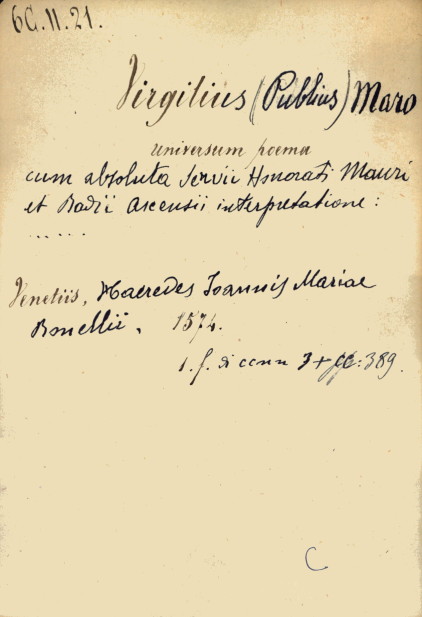 6G.11.21.
Virgilius (Publius) Maro
universum poema
cum absoluta Servii Honorati Mauri
et Badii Ascensii interpretatione:
......
Venetiis, Haeredes Ioannis Mariae
Bonellii, 1574.
1. f. di cenn 3+cc:389.
C